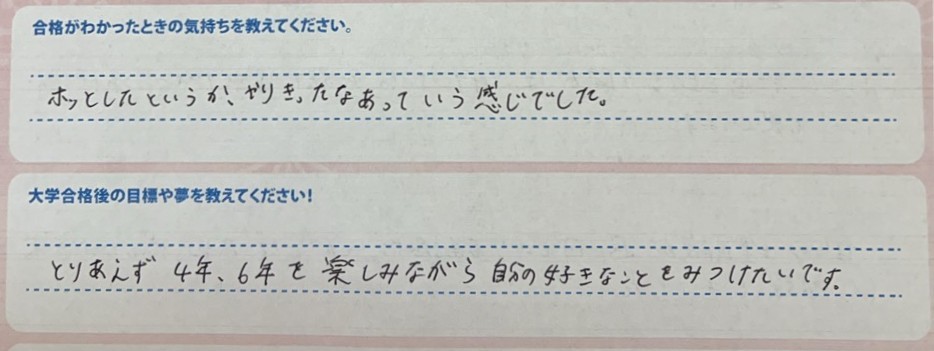 合格がわかったときの気持ちを教えてください。
ホッとしたというか、やりきったなあっていう感じでした。
大学合格後の目標や夢を教えてください!
とりあえず 4年、6年を楽しみながら自分の好きなことをみつけたいです。